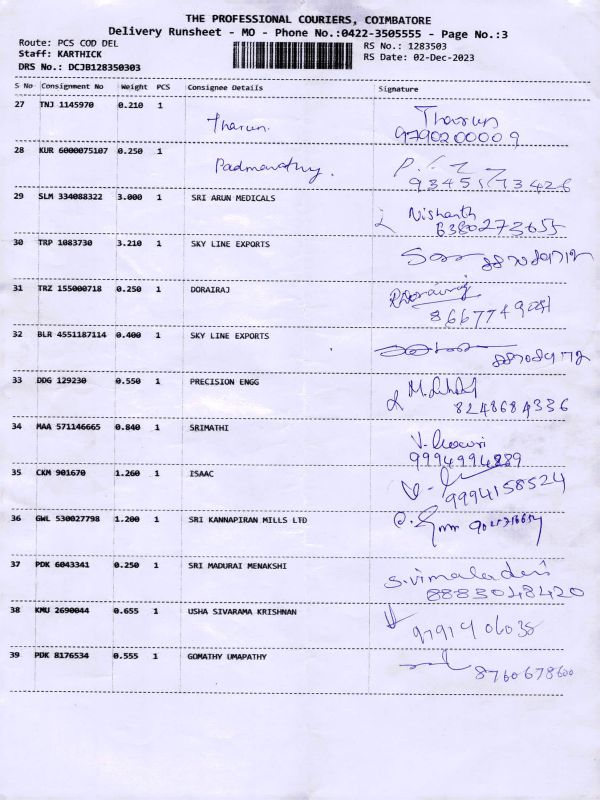 THE PROFESSIONAL COURIERS, COIMBATORE
Delivery Runsheet - MO - Phone No.:0422-3505555 - Page No.:3
Route: PCS COD DEL RS No.: 1283503
Staff: KARTHICK RS Date: 02-Dec-2023
DRS No.: DCJB128350303
S No Consignment No Weight PCS Consignee Details Signature
27 TNJ 1145970 0.210 1 Tharun. Tharun
9790200009
28 KUR 6000075107 0.250 1 Padmavathy.
9345173426
29 SLM 334088322 3.000 1 SRI ARUN MEDICALS Nishanth
6380273655
30 TRP 1083730 3.210 1 SKY LINE EXPORTS
31 TRZ 155000718 0.250 1 DORAIRAJ
32 BLR 4551187114 0.400 1 SKY LINE EXPORTS
33 DDG 129230 0.550 1 PRECISION ENGG
8248684336
34 MAA 571146665 0.840 1 SRIMATHI
9994994889
35 CKM 901670 1.260 1 ISAAC
9994158524
36 GWL 530027798 1.200 1 SRI KANNAPIRAN MILLS LTD
37 PDK 6043341 0.250 1 SRI MADURAI MENAKSHI S.Vimaladevi
8883048420
38 KMU 2690044 0.655 1 USHA SIVARAMA KRISHNAN
9791406035
39 PDK 8176534 0.555 1 GOMATHY UMAPATHY
8760678600